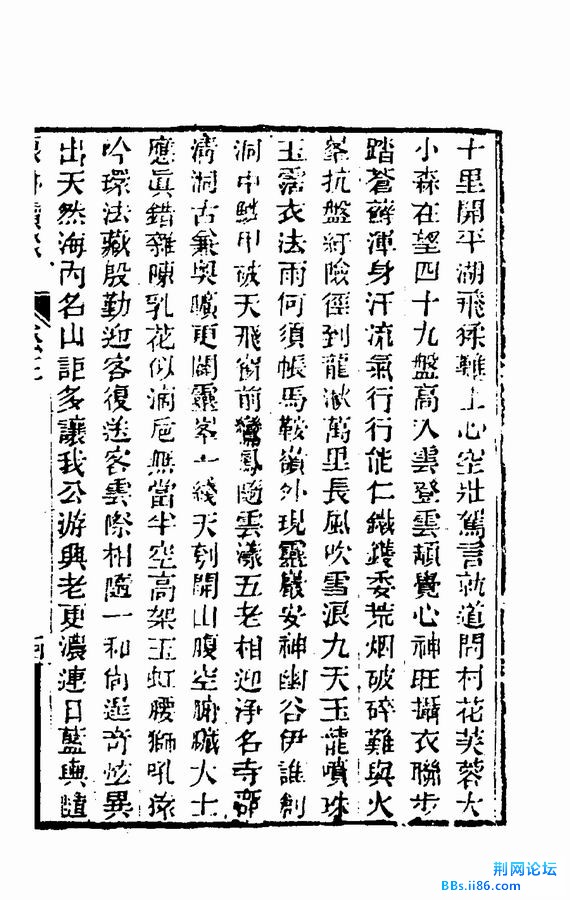 十里開平湖飛猱雖上心空壯駕言就道問村花芙蓉大
小森在望四十九盤高入雲登雲頓覺心神旺攝衣聯步
踏蒼蘚渾身汗流氣行行能仁鐵鑊委荒烟破碎難與火
抗盤紆險徑到龍湫萬里長風吹雪浪九天玉龍噴珠
玉霑衣法雨何須帳馬鞍嶺外現靈巖安神幽谷伊誰創
洞中甲破天飛窗前鸞鳳隨雲漾五老相迎淨名寺
洞古兼與曠更闢靈峯一綫天刳開山腹空腑臟大士
應眞錯雜陳乳花似滴巵無當半空高架玉虹腰獅吼猿
吟環法藏殷勤迎客復送客雲際相隨一和尙選奇炫異
出天然海內名山詎多讓我公游興老更濃連日藍輿
荆网论坛
BBs.ii86.com